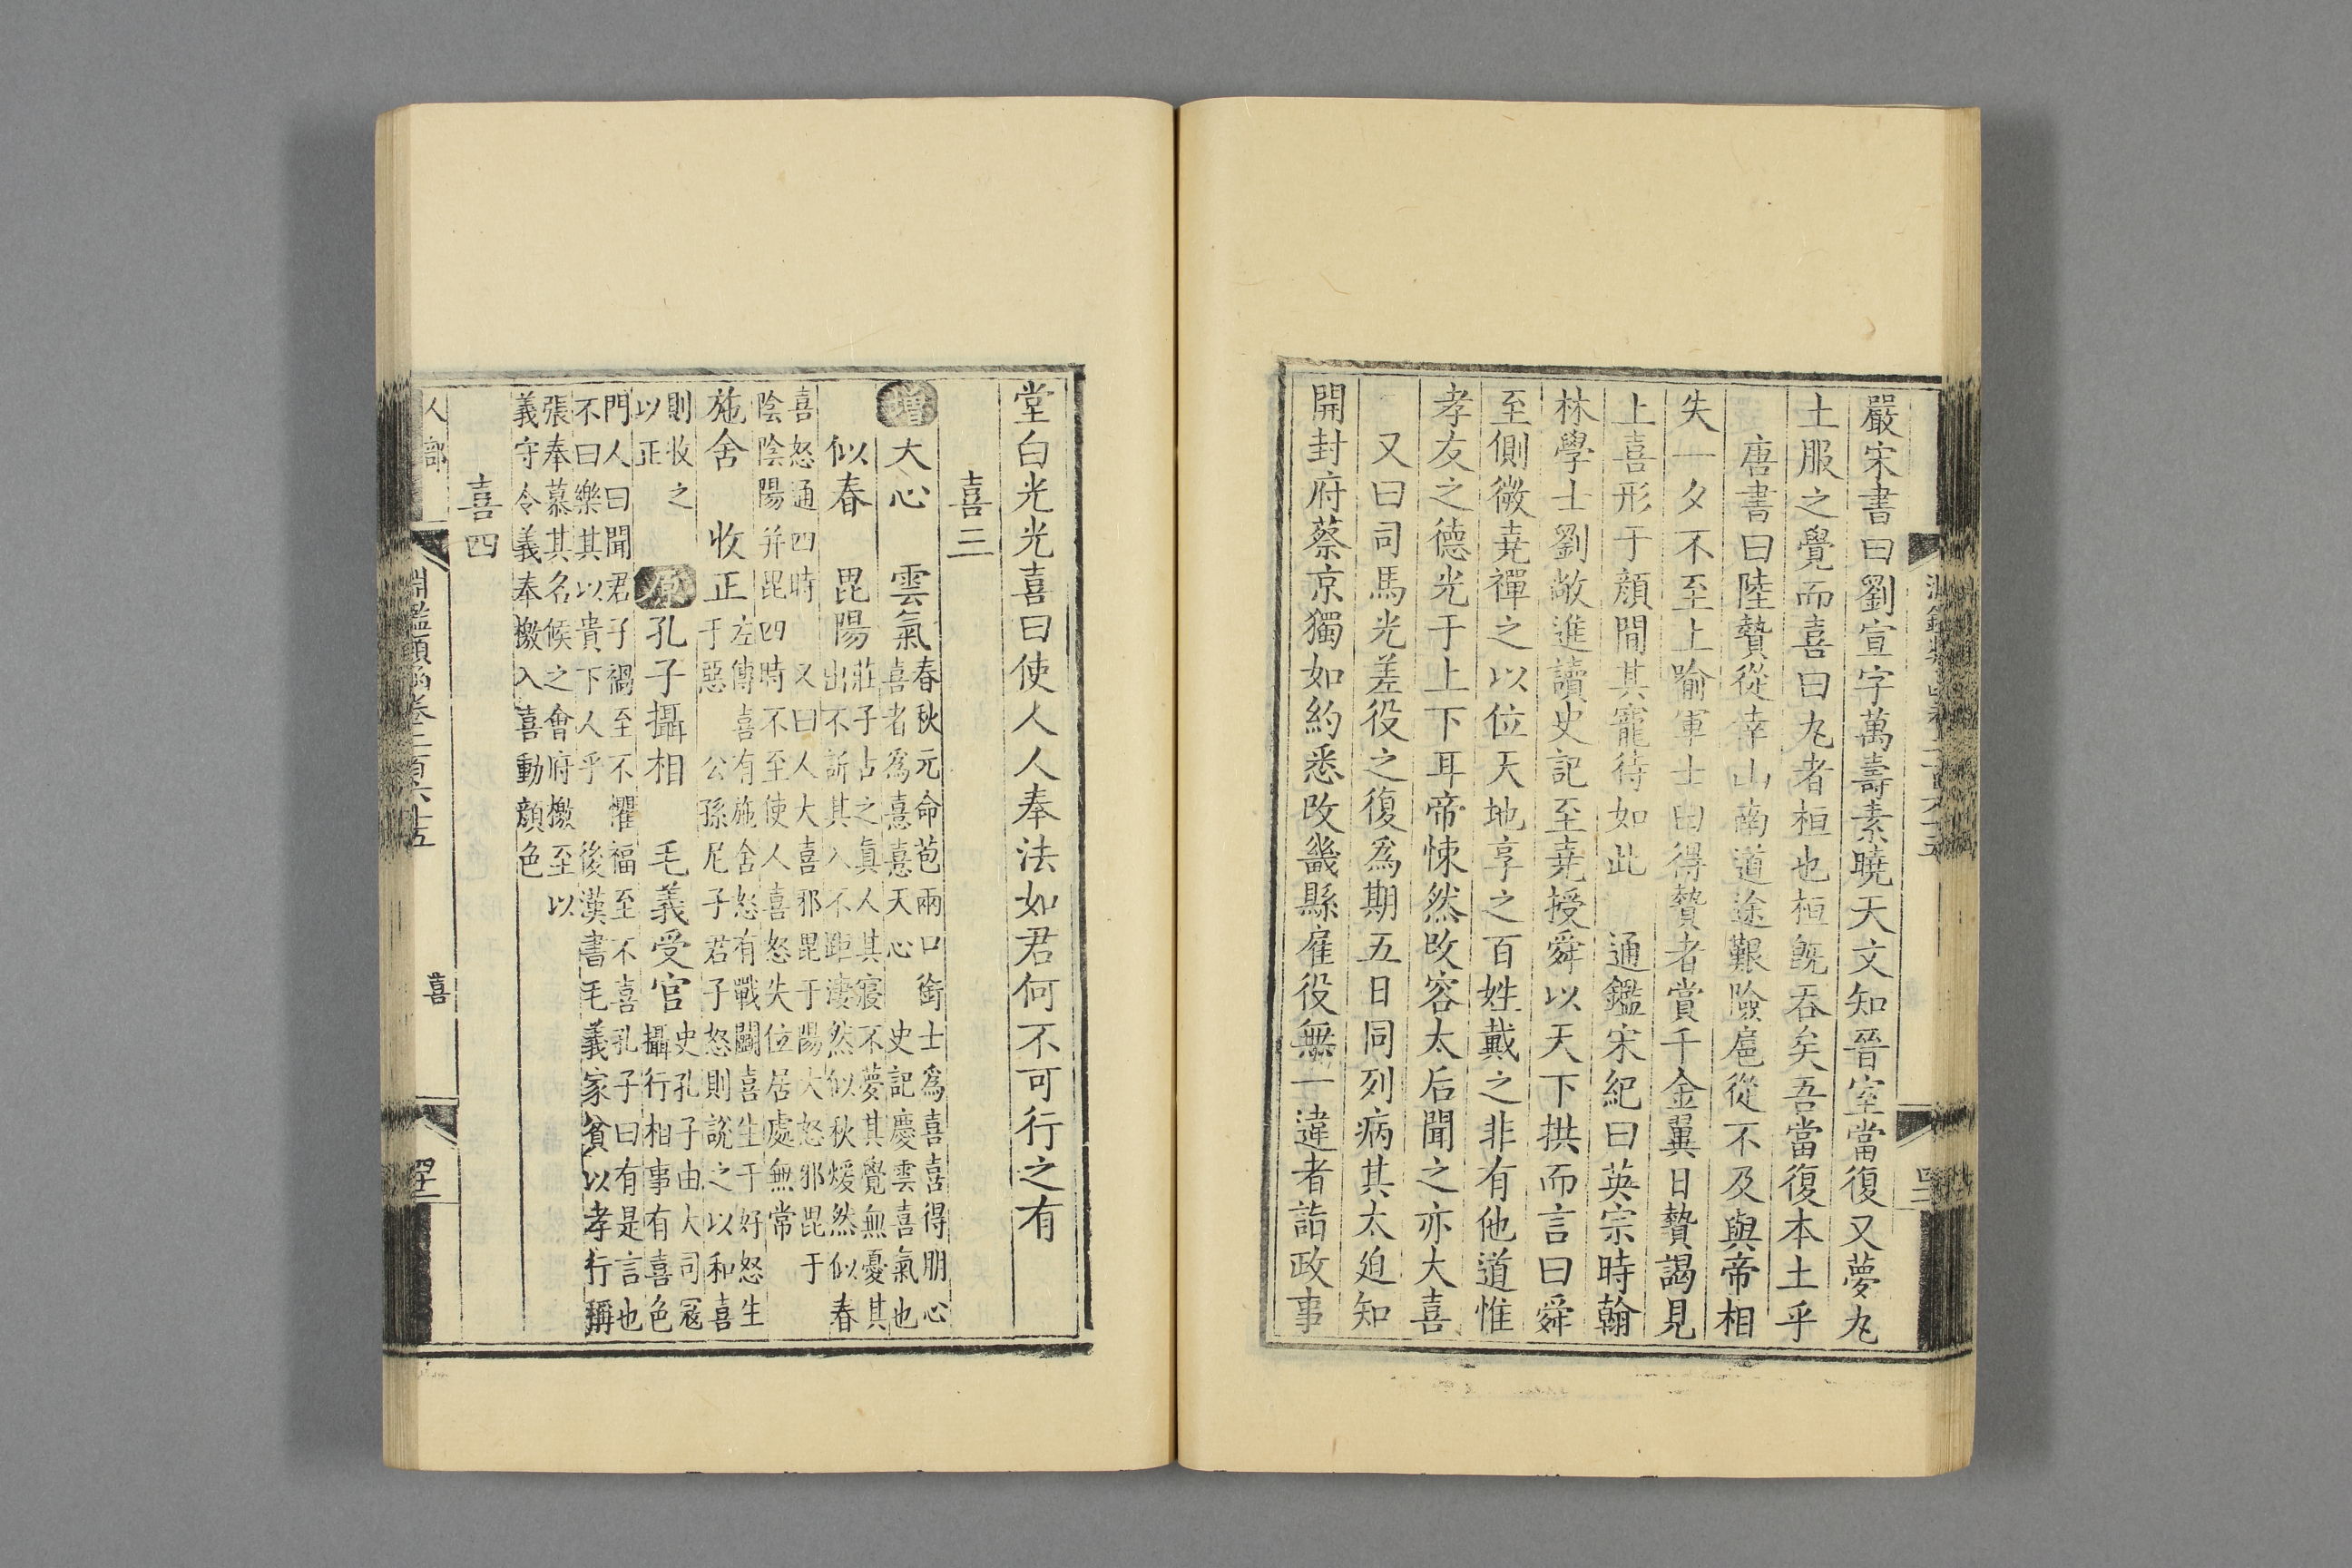 嚴宋書曰劉宣字萬壽素曉天文知晉室當復又夢丸
土服之覺而喜曰丸者桓也桓旣吞矣吾當復本土乎
唐書曰陸贄從幸山南道途艱險扈從不及與帝相
失一夕不至上喻軍士曰得贄者賞千金翼日贄謁見
上喜形于顔間其寵待如此 通鑑宋紀曰英宗時翰
林學士劉敞進讀史記至堯授舜以天下拱而言曰舜
至側微堯禪之以位天地享之百姓戴之非有他道惟
孝友之德光于上下耳帝悚然改容太后聞之亦大喜
又曰司馬光差役之復爲期五日同列病其太廹知
開封府蔡京獨如約悉改畿縣雇役無一違者詣政事
堂白光光喜曰使人人奉法如君何不可行之有
喜三
增 大心 雲氣 春秋元命苞兩口銜士爲喜喜得朋心
喜者爲憙憙天心 史記慶雲喜氣也
似春 毘陽 莊子古之眞人其寢不夢其覺無憂其
出不訢其入不距淒然似秋煖然似春
喜怒通四時 又曰人大喜邪毘于陽大怒邪毘于
陰陰陽并毘四時不至使人喜怒失位居處無常
施舍 收正 左傳喜有施舍怒有戰鬬喜生于好怒生
于惡 公孫尼子君子怒則說之以和喜
則收之
以正
原 孔子攝相 毛義受官 史孔子由大司寇
攝行相事有喜色
門人曰聞君子禍至不懼福至不喜孔子曰有是言也
不曰樂其以貴下人乎 後漢書毛義家貧以孝行稱
張奉慕其名候之會府檄至以
義守令義奉檄入喜動顔色
喜四
人部
淵鑑類函卷二百六十五
喜